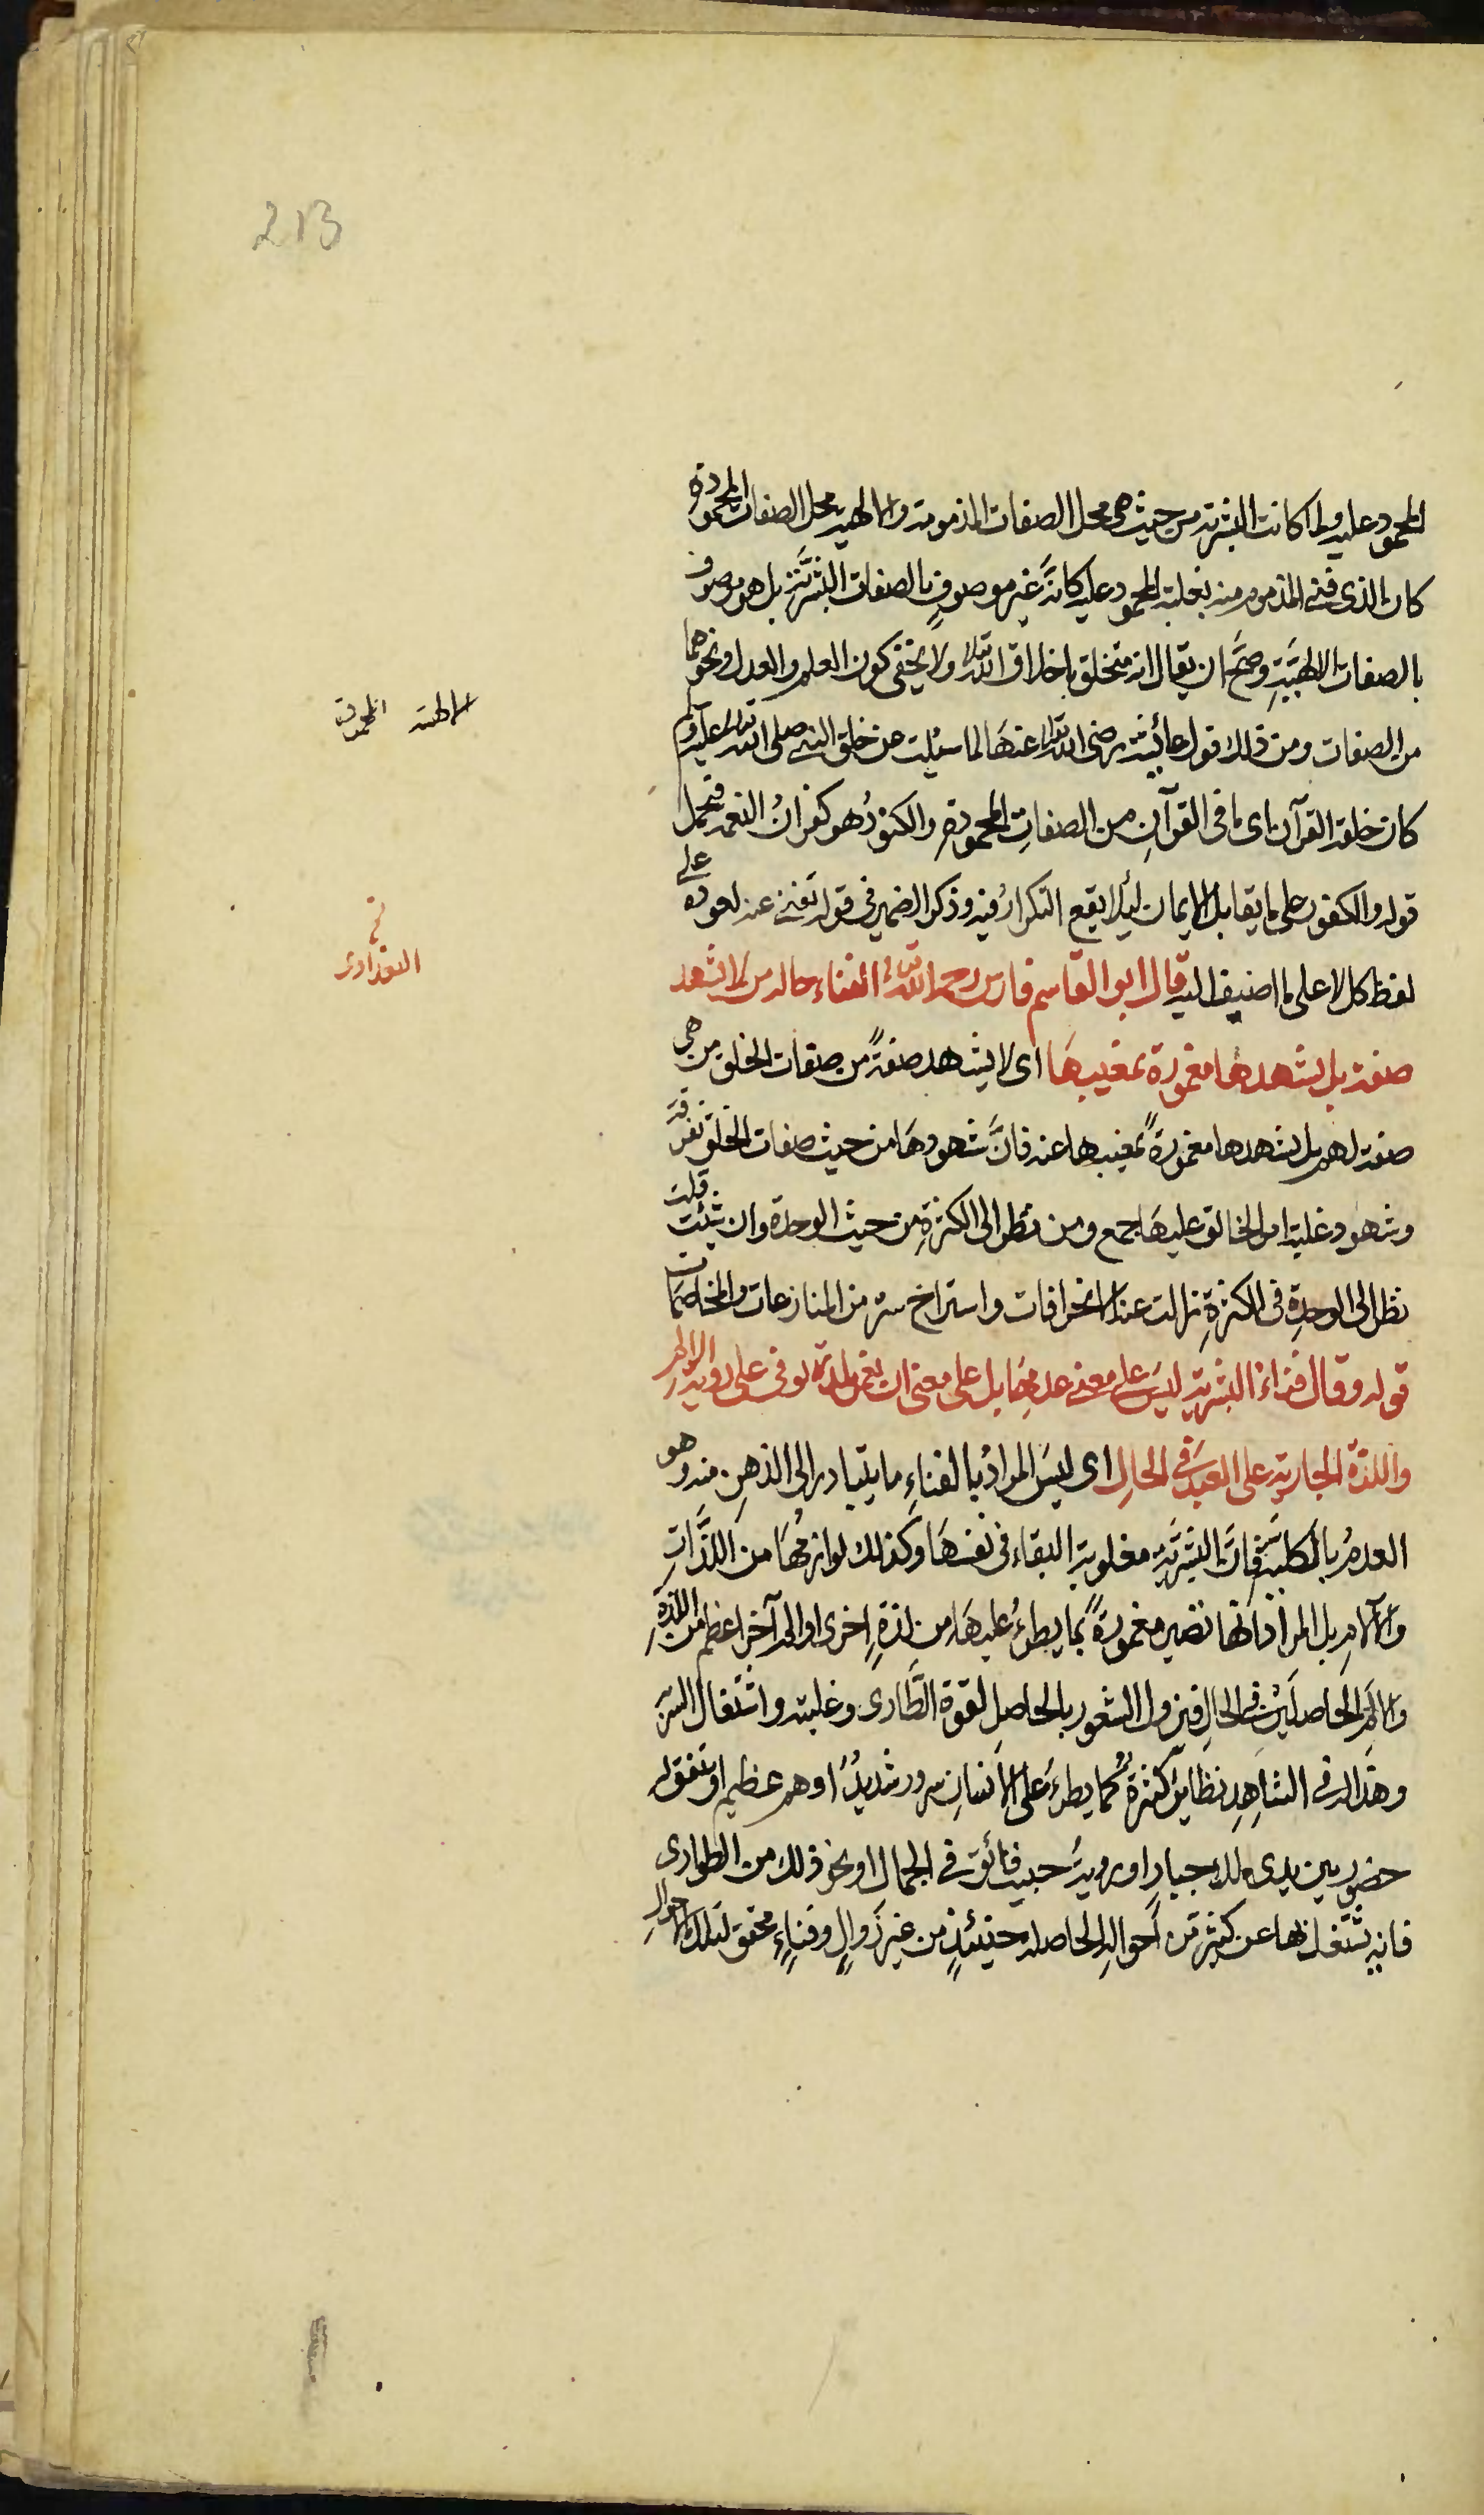 213
المحمود عليه ولما كانت البشرية من حيث هى محل الصفات المذمومة والالهية محل الصفات المحمودة
كان الذى فنى المذموم منه بغلبة المحمود عليه كانَّه غير موصوفٍ بالصفات البشريَّة بل هو موصوف
بالصفات الالهيَّةِ وصحَّ ان يقال انه متخلق باخلاق الله تعالى ولا يخفى كون العلم والعدل ونحوهما
من الصفات ومن ذلك قول عائشة رضى الله تعالى عنهَا لما سئلت عن خلق النبى صلى الله تعالى عليه وسلم
كان خلقه القرآن اى ما فى القرآنِ من الصفاتِ المحمودة والكنودُ هو كفرانُ النعمة فيحمل
قوله والكفور على ما يقابل الايمان لئلا يقع التكرارُ فيه وذكر الضمير فى قوله تفنى عنه لعوده على
لفظ كل لا على ما اضيف اليه قال ابو القاسم فارس رحمه الله تعالى الفناء حال من لا يشهد
صفته بل يشهدها مغمورة بمغيبهَا اى لا يشهد صفةً من صفات الخلق من هى
صفة لهم بل يشهدها مغمورةً بمغيبها عنه فانَّ شهودهَا من حيث صفات الخلق تفرقَة
وشهود غلبة امر الخالق عليهَا جمع ومن نظر الى الكثرةِ من حيث الوحدة وان شئت قلت
نظر الى الوحدةِ فى الكثرةِ زالت عنه الانحرافات واستراح سره من المنازعات والمخاصمات
قوله وقال فناء البشرية ليسَ على معنى عدمِهَا بل على معنى ان تغمر بلذة توفى على روية الالم
واللذة الجارية على العبد فى الحالِ اى ليسَ المرادُ بالفناءِ ما يتبادر الى الذهنِ منه وهو
العدمُ بالكلية فانَّ البشريَّة مغلوبة البقاء فى نفسهَا وكذلك لوازمُهَا من اللَّذَّاتِ
والآلامِ بل المراد انها تصير مغمورةً بما يطرءُ عليهَا من لذةٍ اخرى او الم آخر اعظم من اللذةِ
والالمِ الحاصلَيْنِ فى الحالِ فيزول الشعور بالحاصلِ لقوة الطَّارى وغلبته واشتغال السرّ به
وهذا له فى الشاهِدِ نظايرُ كثيرةٌ كما يطرءُ على الانسانِ سرور شديدٌ او هم عظيم او يتفق له
حضور بين يدى ملك جبارٍ او رويةُ حبيب فائق فى الجمال او نحو ذلك من الطوارى
فانه يشتغل بها عن كثير من أحوالِه الحاصلة حينئذٍ من غير زوالٍ وفناءٍ محقق لتلك الاحوالِ
الالهية المحمودة
نخ
البغدادى